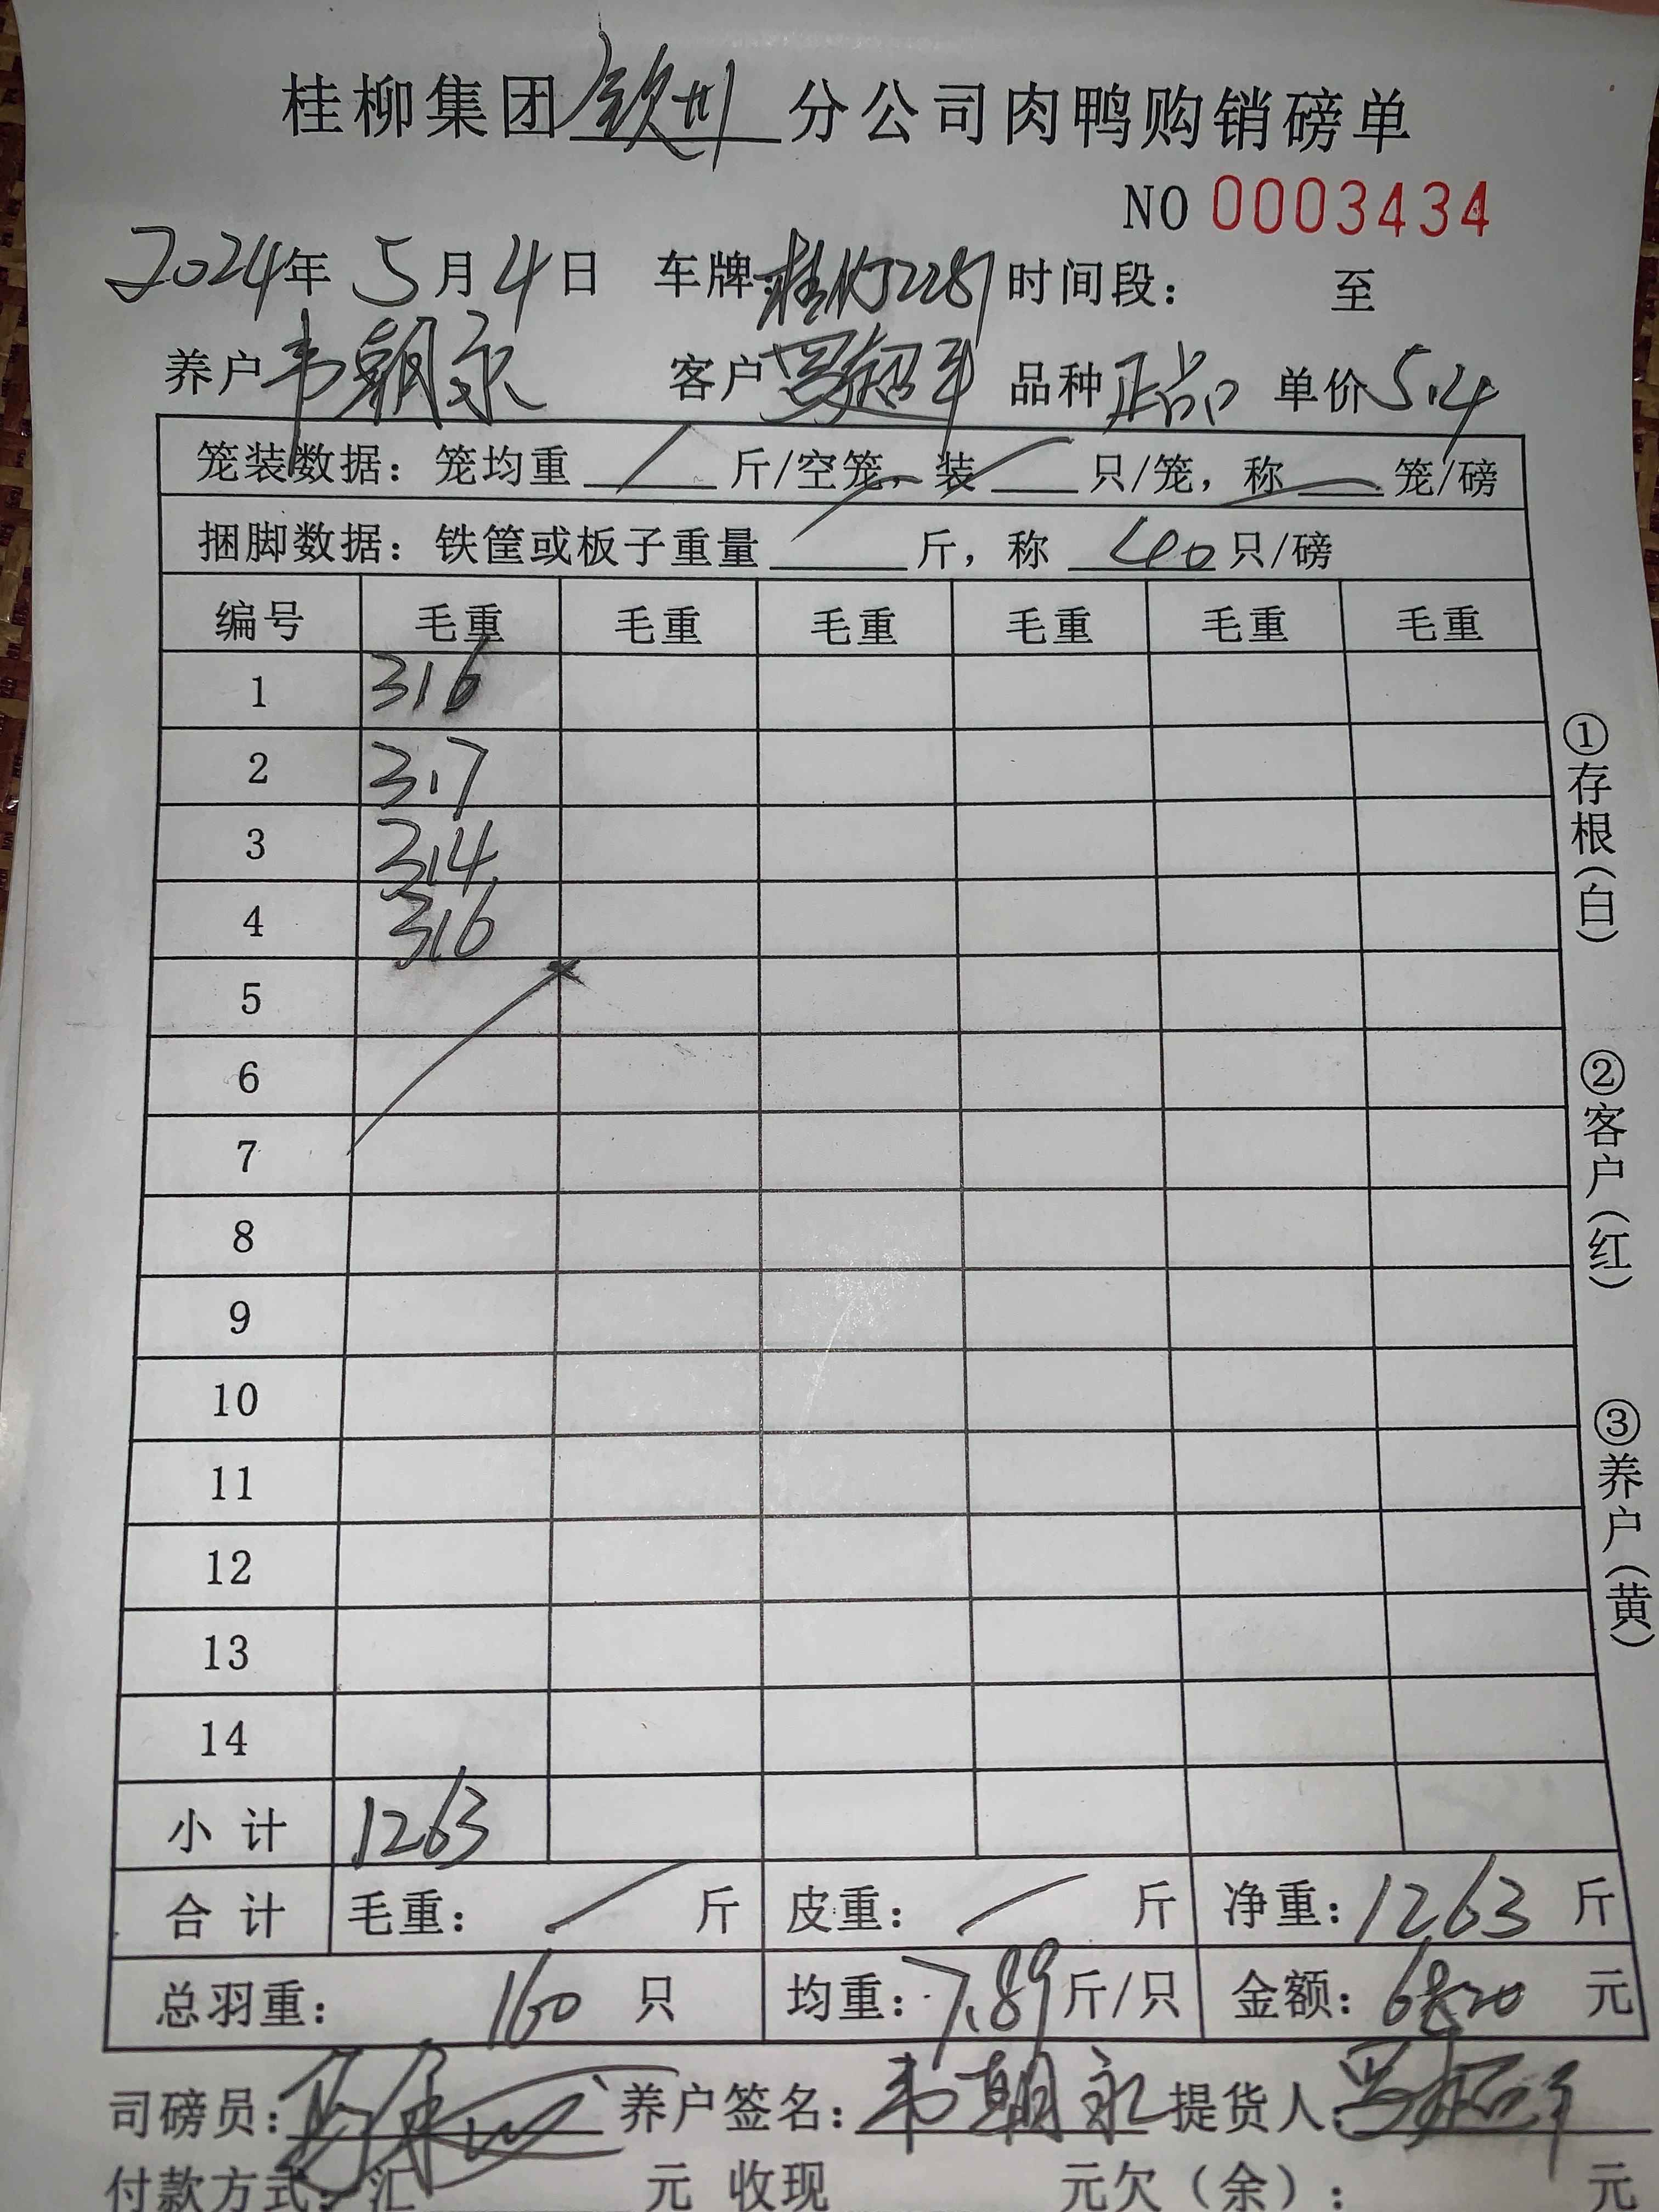 桂柳集团 钦州 分公司肉鸭购销磅单
NO 0003434
2024年 5月 4日 车牌: 桂 2281 时间段: 至
养户 韦朝永 客户 罗超平 品种 正品 单价 5.4
笼装数据: 笼均重 / 斤/空笼, 装 / 只/笼, 称 笼/磅
捆脚数据: 铁筐或板子重量 / 斤, 称 40 只/磅
编号 毛重 毛重 毛重 毛重 毛重 毛重
1 316
2 317
3 314
4 316
5
6
7
8
9
10
11
12
13
14
小 计 1263
合 计 毛重: / 斤 皮重: / 斤 净重: 1263 斤
总羽重: 160 只 均重: 7.89 斤/只 金额: 6820 元
司磅员: 养户签名: 韦朝永 提货人: 罗超平
付款方式: 汇 元 收现 元欠(余): 元
①存根(白)
②客户(红)
③养户(黄)